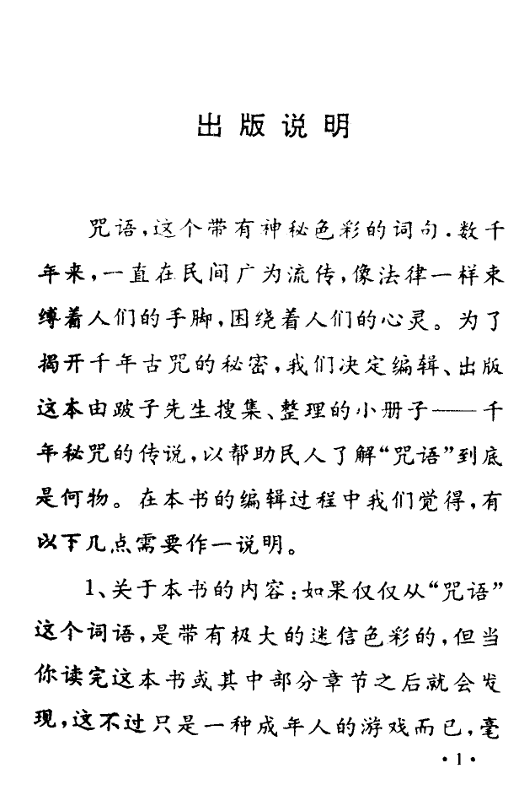 出版说明
咒语,这个带有神秘色彩的词句.数千
年来,一直在民间广为流传,像法律一样束
缚着人们的手脚,困绕着人们的心灵。为了
揭开千年古咒的秘密,我们决定编辑、出版
这本由跛子先生搜集、整理的小册子——千
年秘咒的传说,以帮助民人了解“咒语”到底
是何物。在本书的编辑过程中我们觉得,有
以下几点需要作一说明。
1、关于本书的内容:如果仅仅从“咒语”
这个词语,是带有极大的迷信色彩的,但当
你读完这本书或其中部分章节之后就会发
现,这不过只是一种成年人的游戏而已,毫
·1·